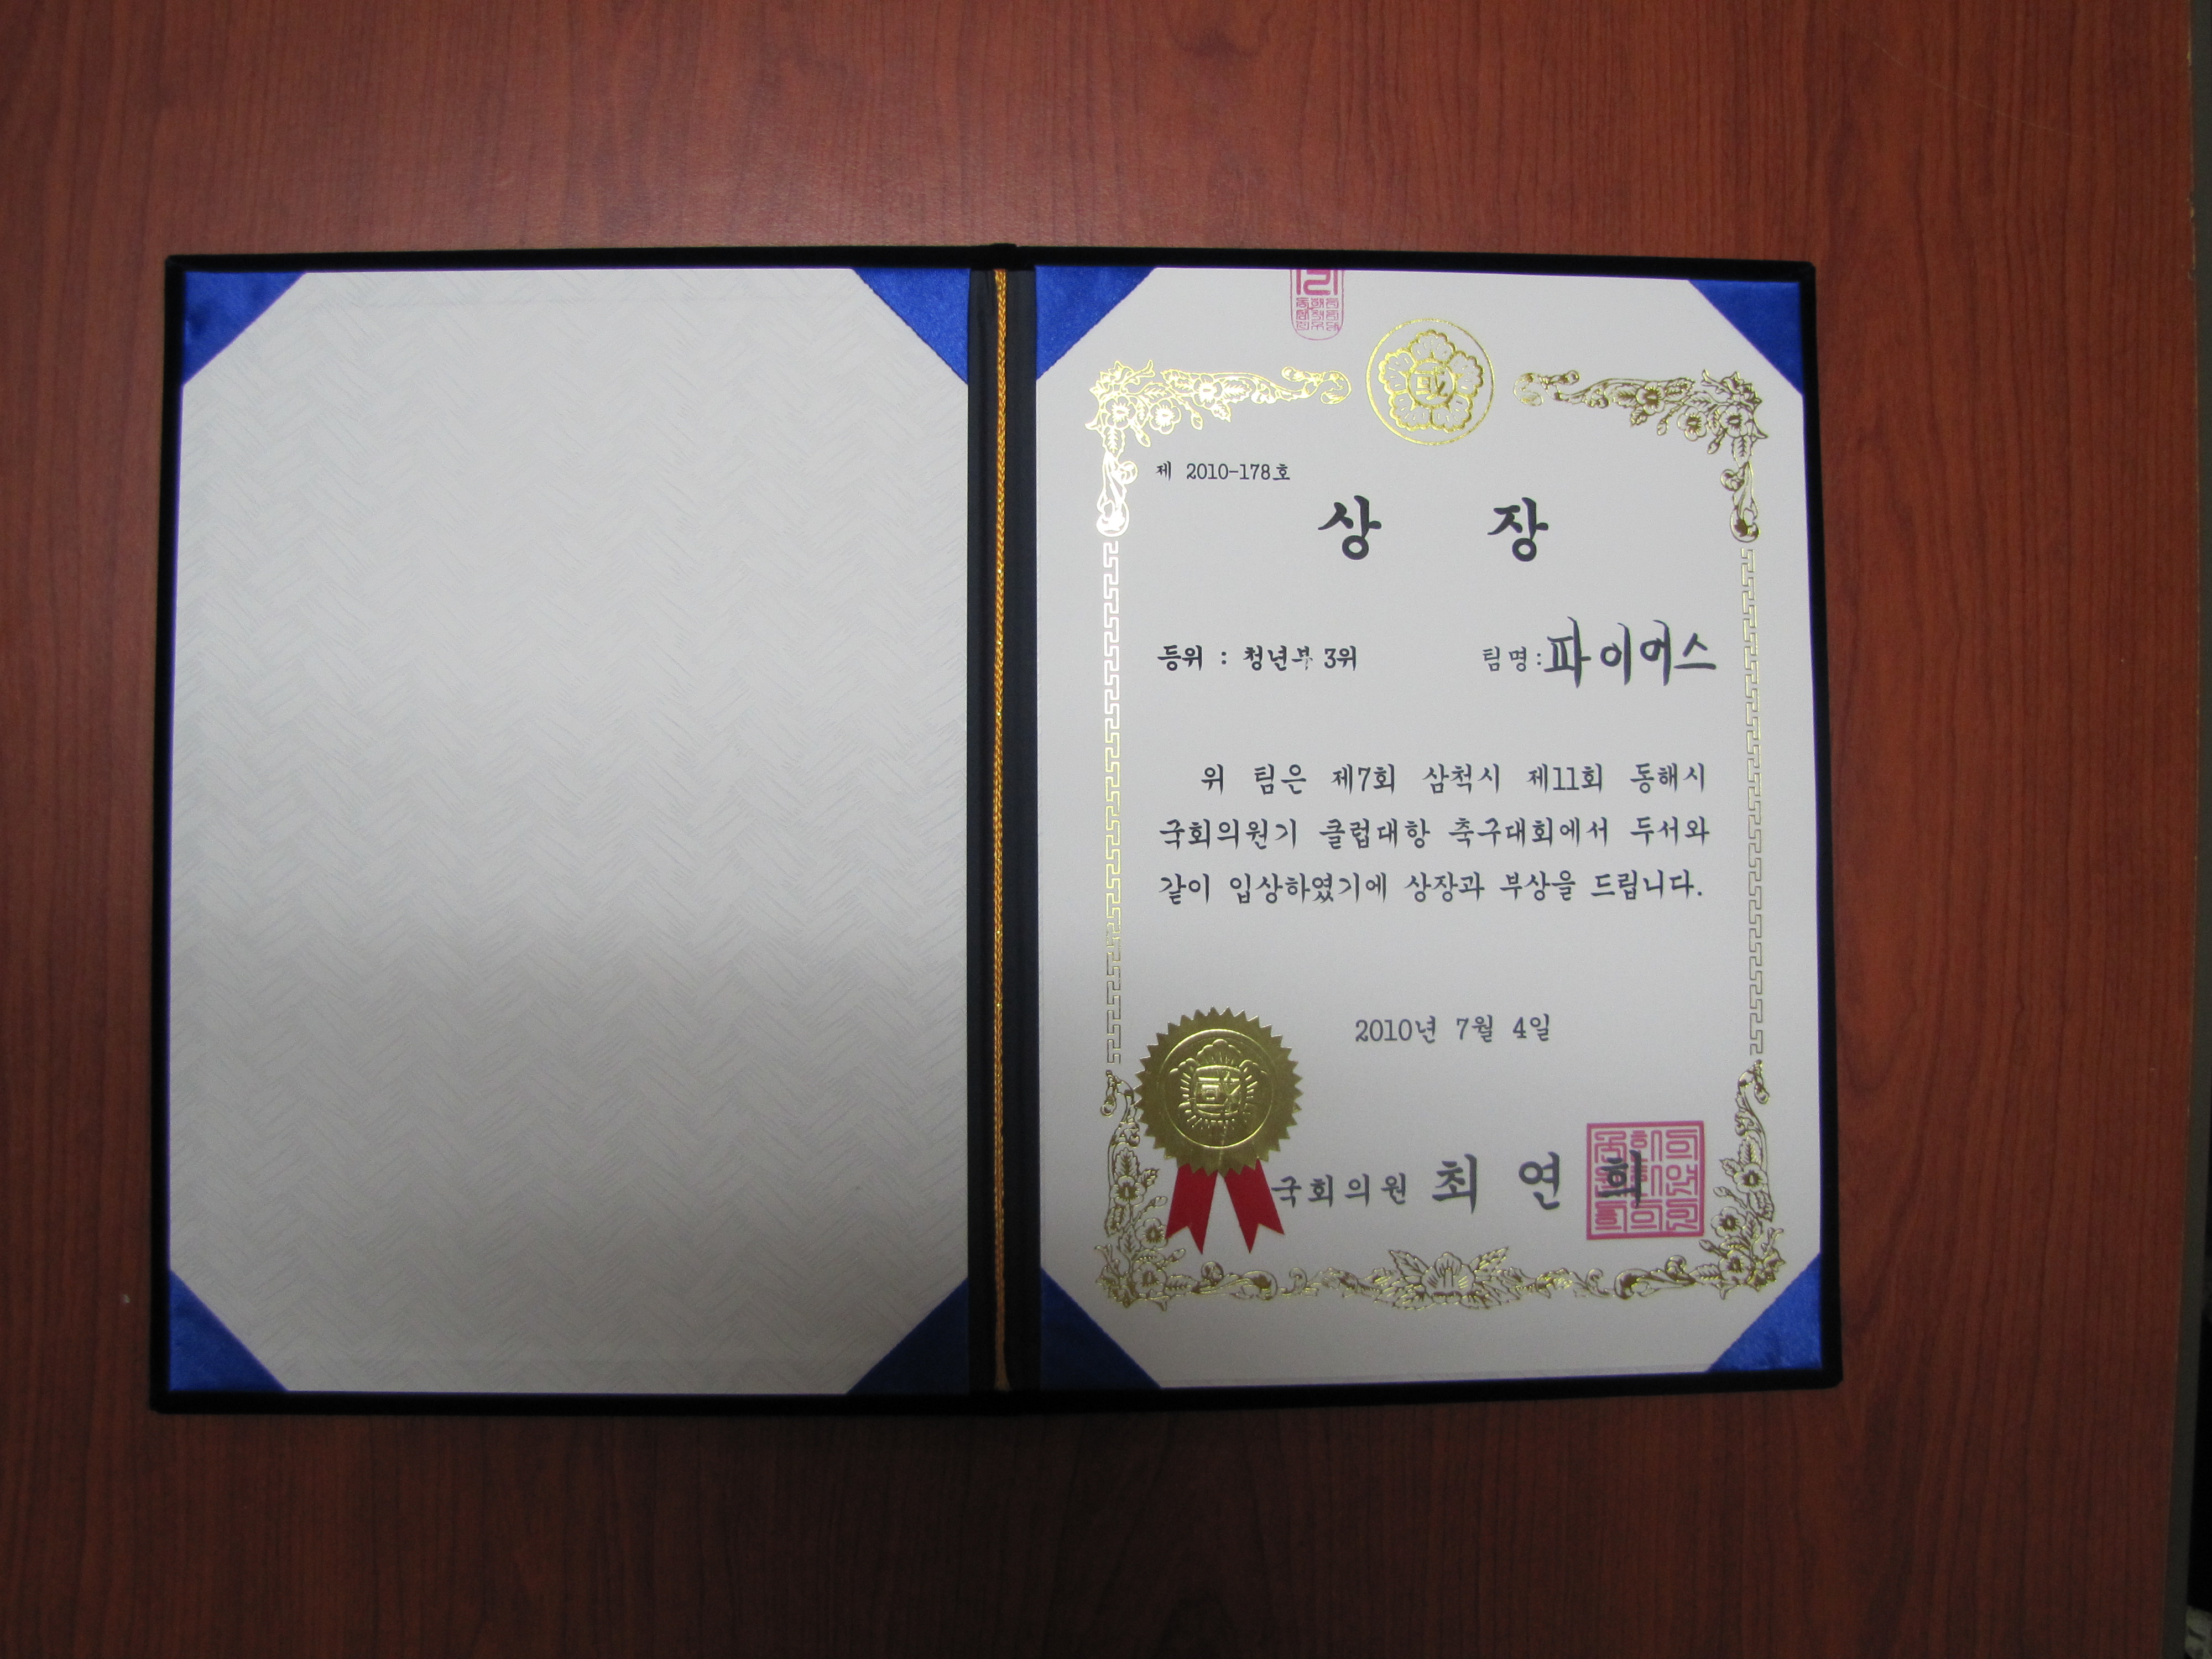 제 2010-178호
상 장
등위 : 청년부 3위 팀명:파이어스
위 팀은 제7회 삼척시 제11회 동해시
국회의원기 클럽대항 축구대회에서 두서와
같이 입상하였기에 상장과 부상을 드립니다.
2010년 7월 4일
국회의원 최 연 희